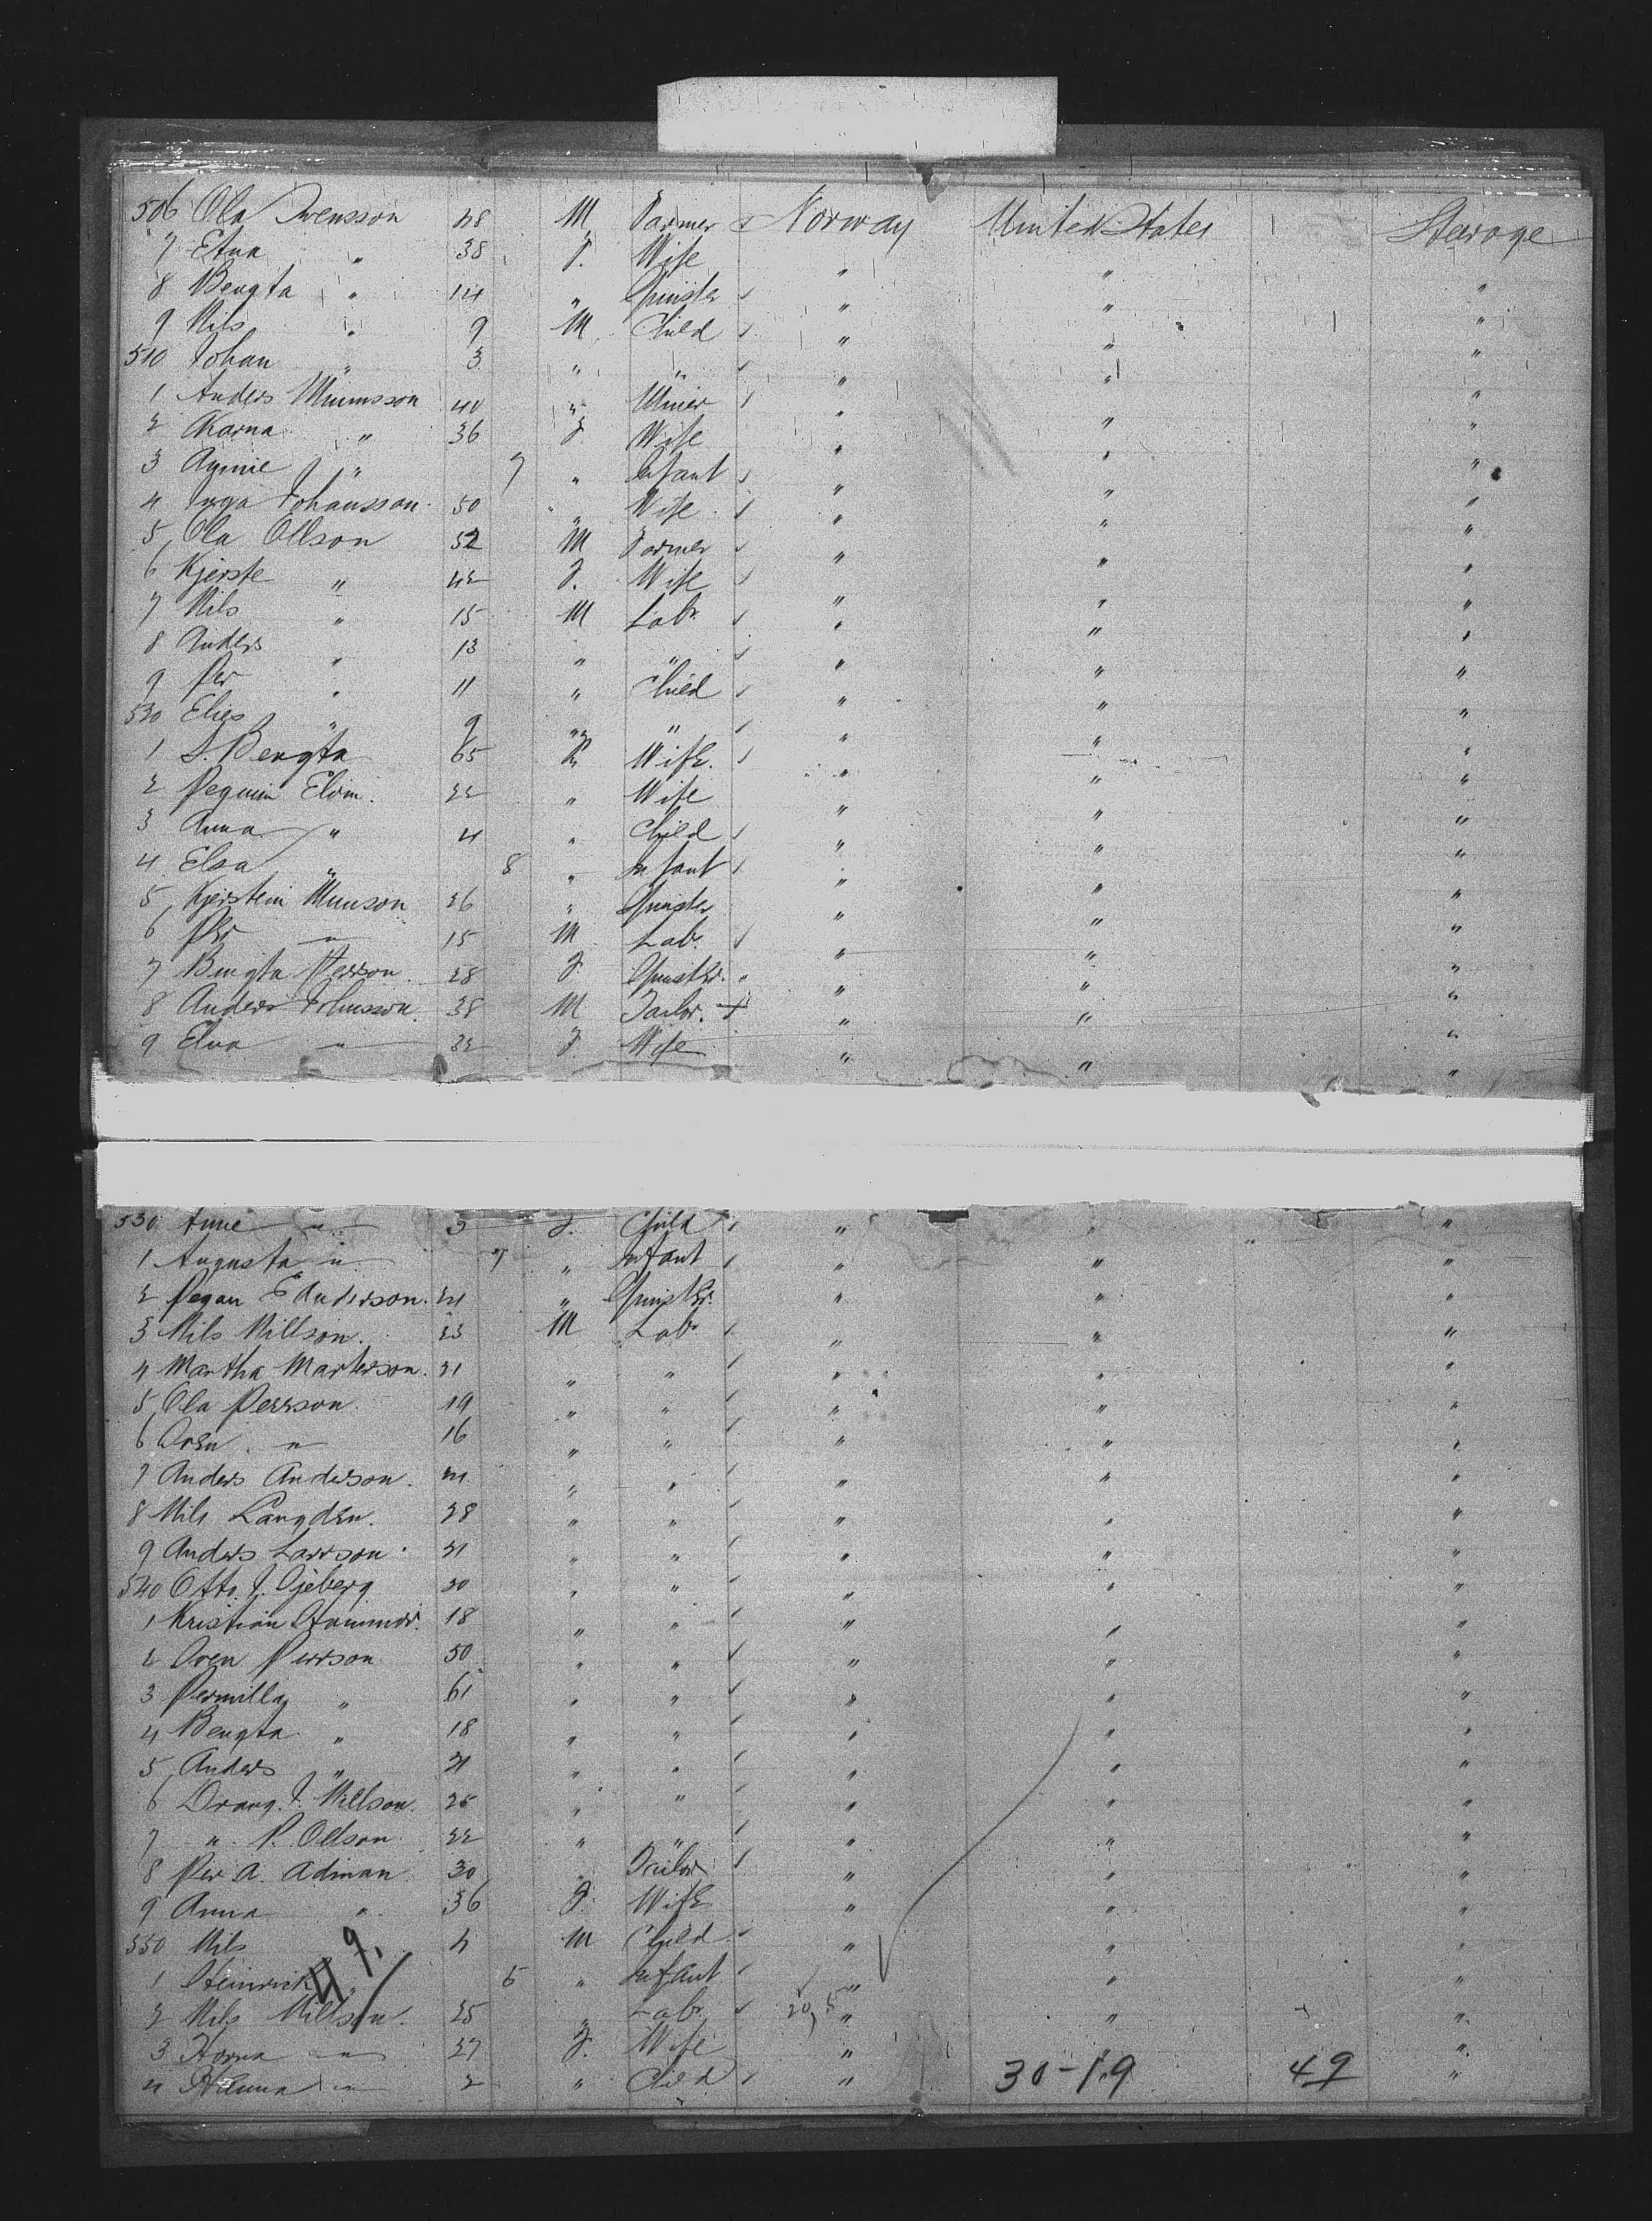 506 Ola Swensson 48 M Farmer Norway United States Steerage
7 Elna " 38 F. Wife " "
8 Bengta " 14 " Spinster " " "
9 Nils " 9 M Child " " "
510 Johan " 3 " " " " "
1 Anders Munsson 40 " Miner " " "
2 Karna " 36 F Wife " " "
3 " 7 " Infant " " "
4 Inga Johansson 50 " Wife " " "
5 Ola Ollson 52 M Farmer " " "
6 Kjerste " 42 F. Wife " " "
7 Nils " 15 M Lab. " " "
8 Anders " 13 " " " " "
9 Per " 11 " Child " " "
520 Elies " 9 " " " " "
1 S. Bengta 65 F Wife. " " "
2 Elvin. 22 " Wife " " "
3 Anna " 4 " Child " " "
4 Elsa " 8 " Infant " " "
5 Kjerstein Munson 26 " Spinster " " "
6 Per " 15 M Lab. " " "
7 Bengta Persson 28 F Spinster. " " "
8 Anders Johnsson. 38 M Tailor. + " " "
9 Elna " 32 F. Wife " " "
530 Anne " 3 F. Child " " "
1 Augusta " 7 " Infant " " "
2 E Anderson. 24 " Spinster. " " "
3 Nils Nillson. 23 M Lab " " "
4 Martha Marterson. 21 " " " " "
5 Ola Persson. 19 " " " " "
6 Oren " 16 " " " " "
7 Anders Anderson. 21 " " " " "
8 Nils Langden. 28 " " " " "
9 Anders Larrson 21 " " " " "
540 Otto J. Ojeberg 20 " " " " "
1 Kristian 18 " " " " "
2 Oren Perrson 50 " " " " "
3 Pernilla " 61 " " " " "
4 Bengta " 18 " " " " "
5 Anders " 21 " " " " "
6 Drang. J. Nillson. 25 " " " " "
7 " P. Ollson 22 " " " " "
8 Per A. Adman 30 " Tailor " " "
9 Anna " 36 F. Wife " " "
550 Nils 4 M Child " " "
1 Heinrick " 5 " Infant " " "
49,
2 Nils Nillson. 25 " Lab. " " "
3 Horna " 27 F. Wife " "
4 " 2 " Child " 30-19 49 "